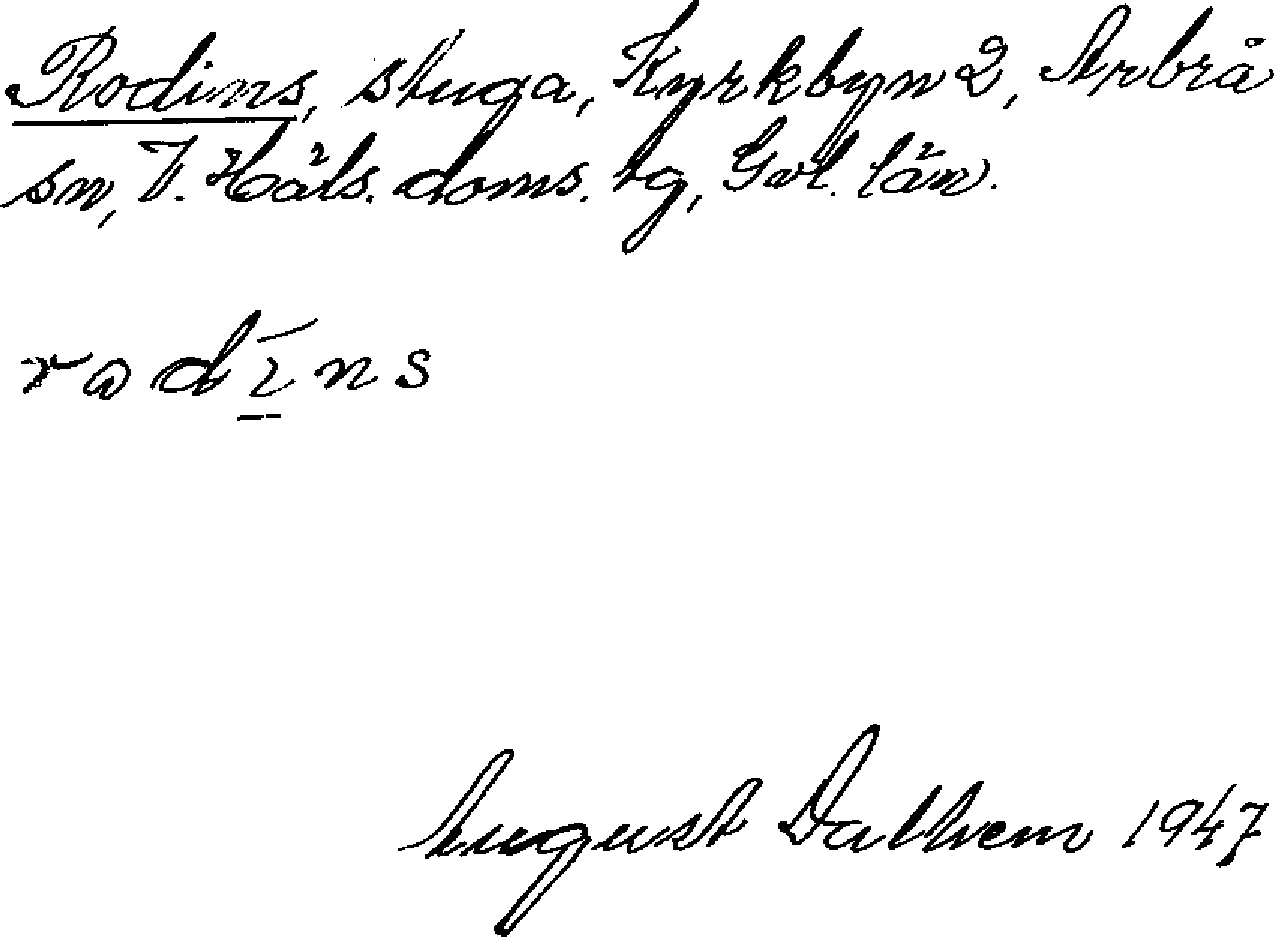 Rodins, stuga, Kyrkbyn 2, Arbrå
sn, V. Häls. doms. tg, Gvl. län.
rodīns
August Dalhem 1947